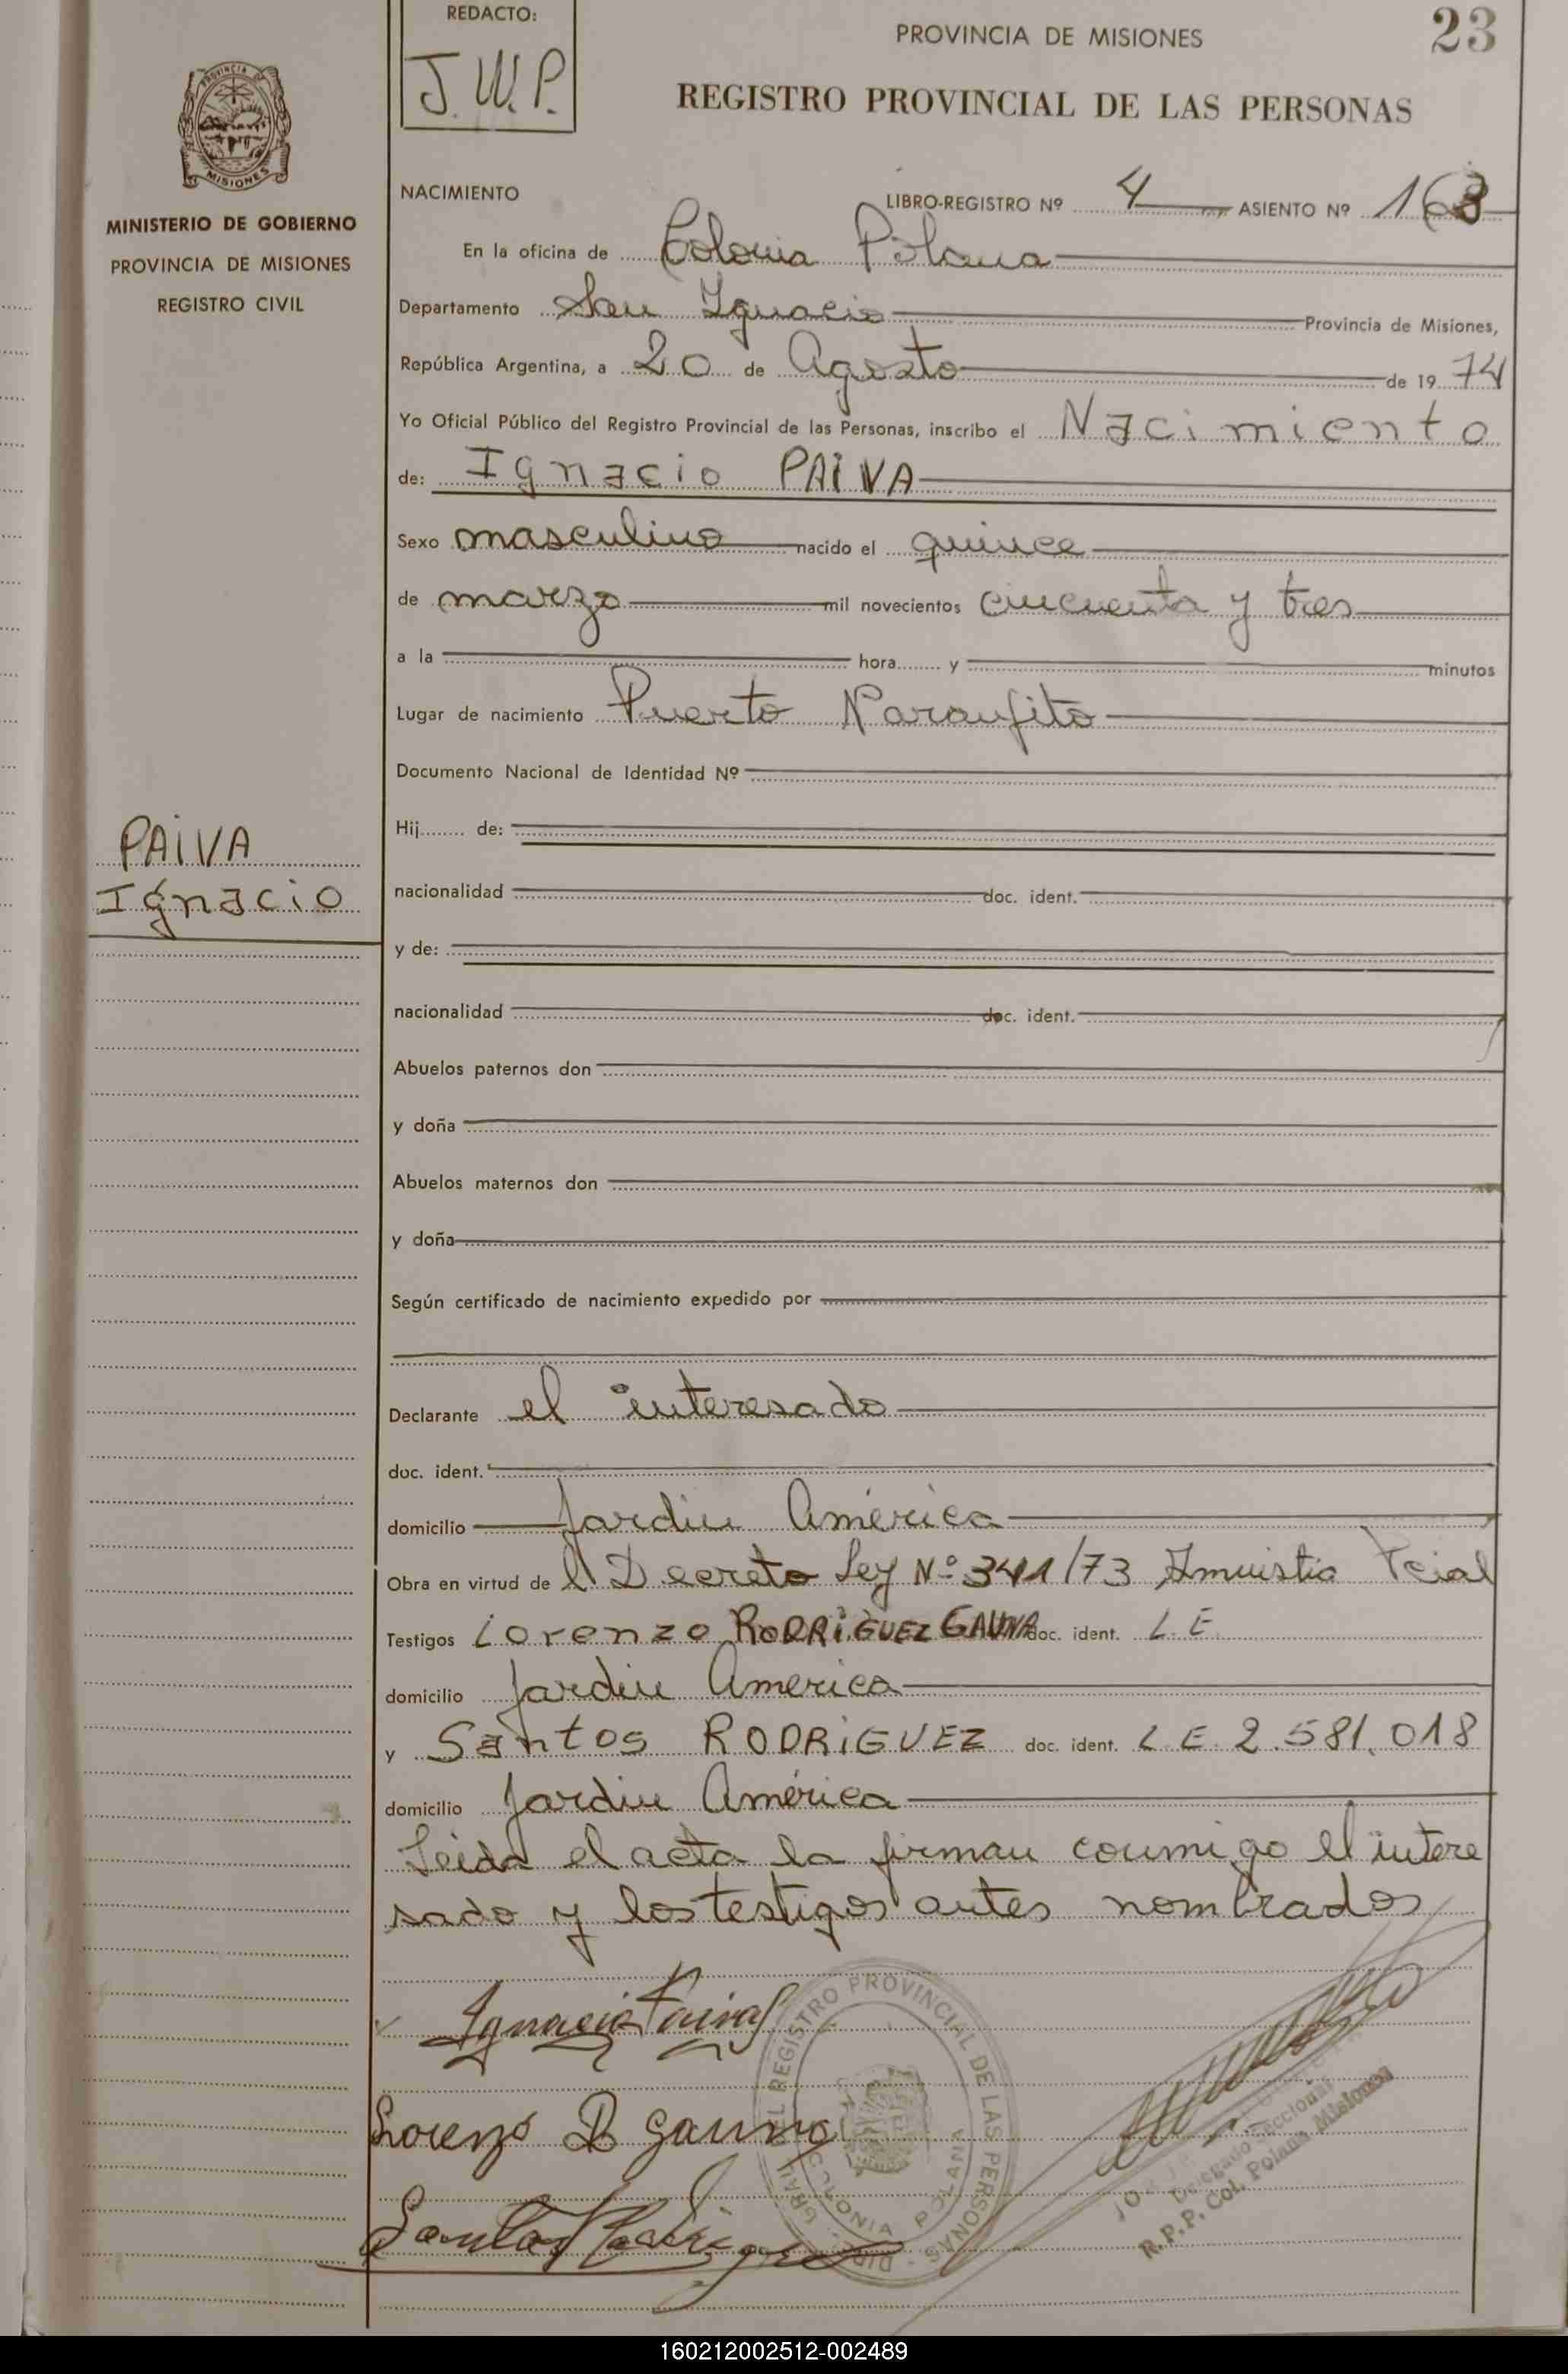 REDACTO:
J.W.P.
PROVINCIA DE MISIONES
23
REGISTRO PROVINCIAL DE LAS PERSONAS
PROVINCIA DE
MISIONES
MINISTERIO DE GOBIERNO
PROVINCIA DE MISIONES
REGISTRO CIVIL
NACIMIENTO LIBRO-REGISTRO Nº 4 ASIENTO Nº 163
En la oficina de Colonia Polana
Departamento San Ignacio Provincia de Misiones,
República Argentina, a 20 de Agosto de 1974
Yo Oficial Público del Registro Provincial de las Personas, inscribo el Nacimiento
de: Ignacio PAIVA
Sexo masculino nacido el quince
de marzo mil novecientos cincuenta y tres
a la hora y minutos
Lugar de nacimiento Puerto Naranjito
Documento Nacional de Identidad Nº
Hij de:
PAIVA
Ignacio
nacionalidad doc. ident.
y de:
nacionalidad doc. ident.
Abuelos paternos don
y doña
Abuelos maternos don
y doña
Según certificado de nacimiento expedido por
Declarante el interesado
doc. ident.
domicilio Jardin América
Obra en virtud de l Decreto Ley Nº 341/73 Amnistia Pcial
Testigos Lorenzo RODRIGUEZ GAUNA doc. ident. L.E.
domicilio Jardin America
y Santos RODRIGUEZ doc. ident. L.E. 2.581.018
domicilio Jardin América
Leida el acta la firman conmigo el intere
sado y los testigos antes nombrados
Ignacio Paiva
Lorenzo R Gauna
Santos Rodriguez
DIR. GRAL. DEL REGISTRO PROVINCIAL DE LAS PERSONAS
COLONIA POLANA
Delegado Seccional
R.P.P. Col. Polana Misiones
160212002512-002489